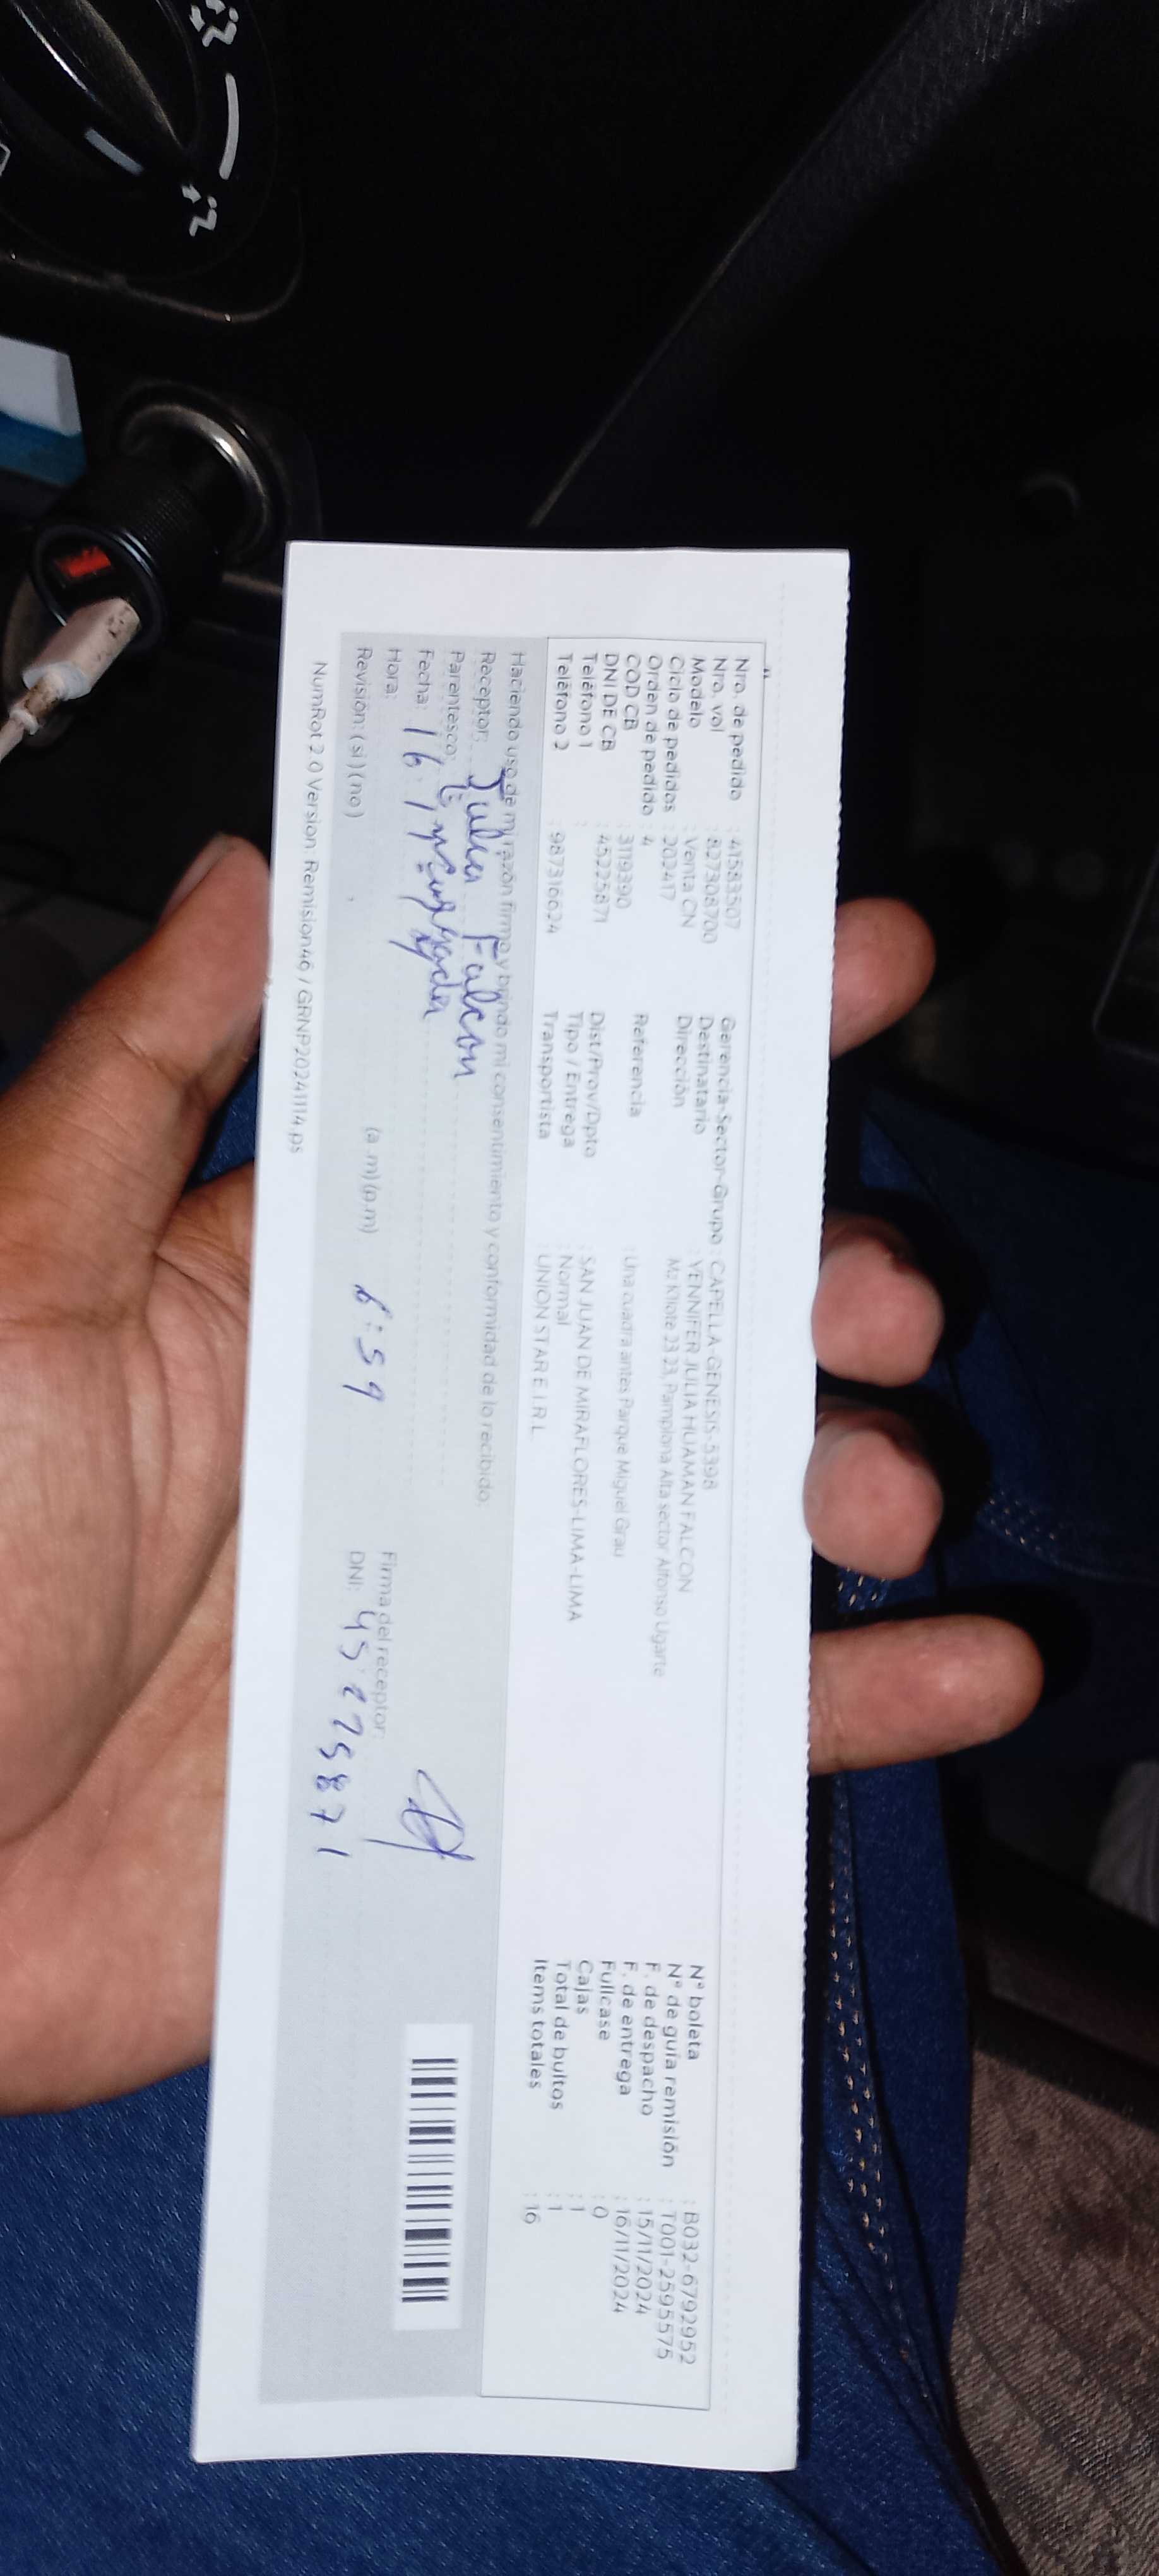 Nro. de pedido : 41583507
Nro. vol : 827308700
Modelo : Venta CN
Ciclo de pedidos : 202417
Orden de pedido : 4
COD CB : 3119390
DNI DE CB : 45225871
Teléfono 1 :
Teléfono 2 : 987316624
Gerencia-Sector-Grupo : CAPELLA-GENESIS-5398
Destinatario : YENNIFER JULIA HUAMAN FALCON
Dirección Mz K lote 23 23, Pamplona Alta sector Alfonso Ugarte
Referencia : Una cuadra antes Parque Miguel Grau
Dist/Prov/Dpto : SAN JUAN DE MIRAFLORES-LIMA-LIMA
Tipo / Entrega : Normal
Transportista : UNION STAR E.I.R.L
N° boleta : B032-6792952
N° de guía remisión : T001-2595575
F. de despacho : 15/11/2024
F. de entrega : 16/11/2024
Fullcase : 0
Cajas : 1
Total de bultos : 1
Items totales : 16
Haciendo uso de mi razón firmo y brindo mi consentimiento y conformidad de lo recibido:
Receptor: Julia Falcon
Parentesco:
Fecha: 16
Hora: (a.m)(p.m) 6:59
Revisión: (si)(no)
Firma del receptor:
DNI: 45225871
NumRot 2.0 Version: Remision46 / GRNP20241114.ps